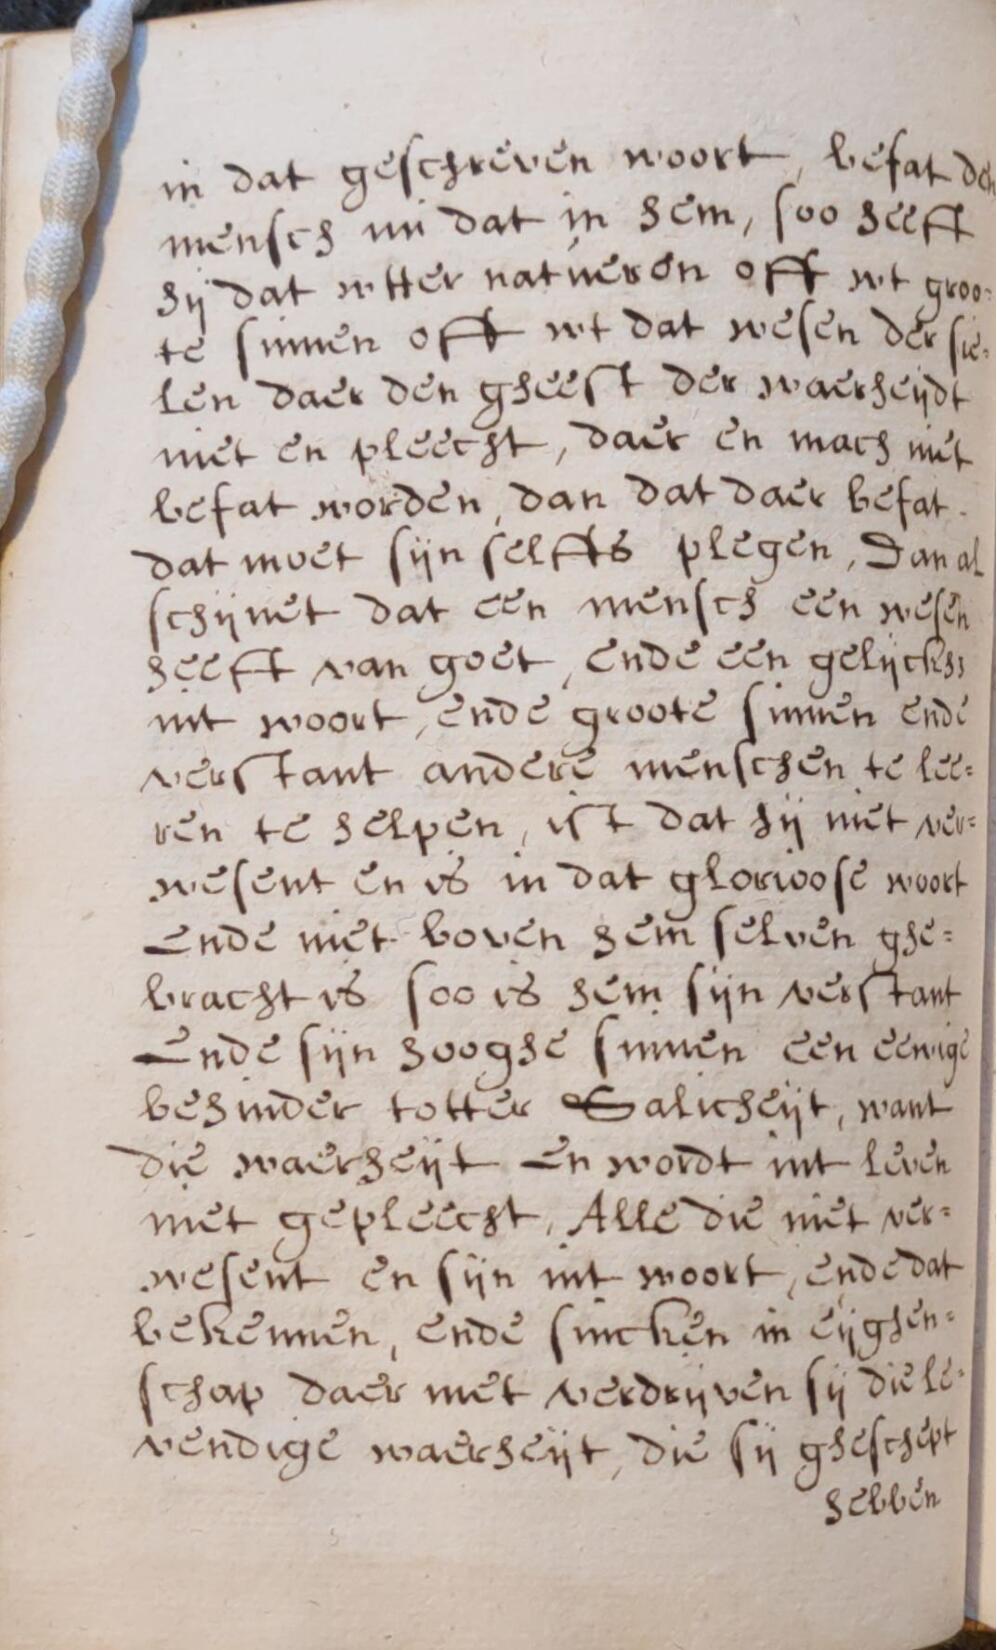 in dat geschreven woort, befat den
mensch nu dat in hem, soo heeft
hij dat wtter natueren off wt groo=
te sinnen off wt dat wesen der sie=
len daer den gheest der waerheijdt
niet en pleecht, daer en mach niet
befat worden, dan dat daer befat.
dat moet sijn selffts plegen, Dan al
schijnet dat een mensch een wesen
heeft van goet, ende een gelijckhs
int woort, ende groote sinnen ende
verstant andere menschen te lee=
ren te helpen, ist dat hij niet ver=
wesent en is in dat glorioose woort
Ende niet boven hem selven ghe=
bracht is soo is hem sijn verstant
Ende sijn hooghe sinnen een eenige
behinder totter Salicheijt, want
die waerheijt En wordt int leven
niet gepleecht, Alle die niet ver=
wesent en sijn int woort, ende dat
bekennen, ende sincken in eijghen=
schap daer met verdrijven sij die le=
vendige waerheijt, die sij gheschept
hebben